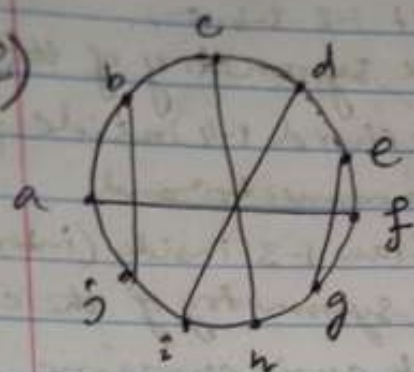 2)
c
b
d
e
a
f
j
g
i
h